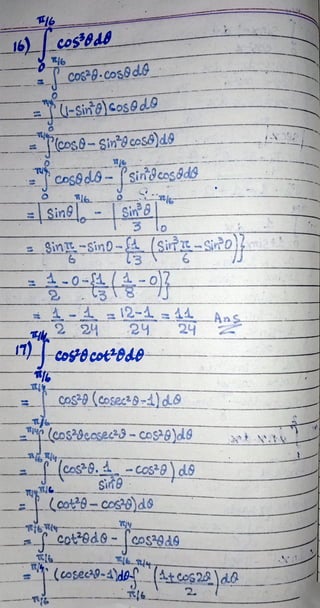 16) ∫₀^{π/6} cos³θdθ
= ∫₀^{π/6} cos²θ·cosθdθ
= ∫₀^{π/6} (1-sin²θ)cosθdθ
= ∫₀^{π/6} (cosθ - sin²θcosθ)dθ
= ∫₀^{π/6} cosθdθ - ∫₀^{π/6} sin²θcosθdθ
= |sinθ|₀^{π/6} - |sin³θ/3|₀^{π/6}
= sin π/6 - sin0 - {1/3 (sin³ π/6 - sin³0)}
= 1/2 - 0 - {1/3 (1/8 - 0)}
= 1/2 - 1/24 = 12-1/24 = 11/24 Ans
17) ∫_{π/6}^{π/4} cos²θcot²θdθ
= ∫_{π/6}^{π/4} cos²θ(cosec²θ-1)dθ
= ∫_{π/6}^{π/4} (cos²θcosec²θ - cos²θ)dθ
= ∫_{π/6}^{π/4} (cos²θ·1/sin²θ - cos²θ)dθ
= ∫_{π/6}^{π/4} (cot²θ - cos²θ)dθ
= ∫_{π/6}^{π/4} cot²θdθ - ∫_{π/6}^{π/4} cos²θdθ
= ∫_{π/6}^{π/4} (cosec²θ-1)dθ - ∫_{π/6}^{π/4} (1+cos2θ/2)dθ